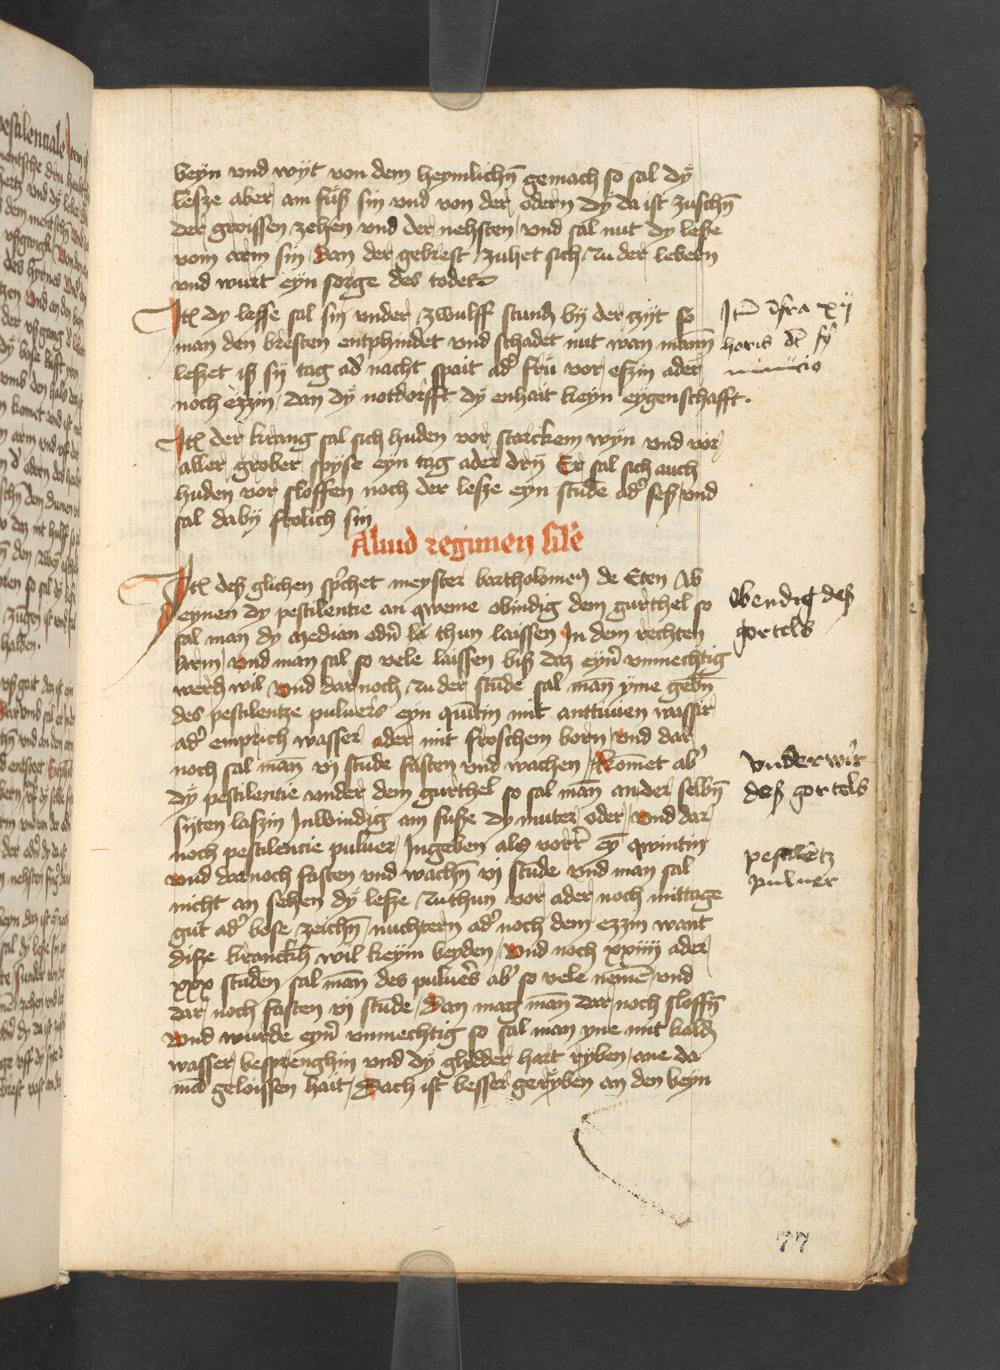 beyn vnd wyt von dem heymlichn̄ gemach so sal dy
lesze aber am fuß sin vnd von der odern dy da ist zuschn̄
der groissen zehen vnd der nehsten vnd sal nut dy lesze
vom arm sin Dan der gebrest zuhet sich zu der lebern
vnd wurt eyn sorge des todes
Itē dy lesse sal sin vnder zwulff stund by der zijt so
man den bresten entphindet vnd schadet nut wan mann
leszet iß sij tag ad' nacht spait ad' fru vor eszin ader
noch ezzin dan dy notdorfft dy enhait keyn eygenschafft.
Itē der krang sal sich huden vor starckem wyn vnd vor
aller grober spyse eyn tag ader drij Er sal sich auch
huden vor sloffen noch der lesze eyn stūde ad' seß vnd
sal daby frolich sin
Aliud regimen sil'e
Itē deß glichen sp'chet meyster bartholome9 de Eten Ab
eymen dy pestilentie an qweme obindig dem gurthel so
sal man dy median odn̄ la thun laissen In dem rechten
arm vnd man sal so vele laissen biß daz eyn' vnmechtig
werdē wil Vnd darnoch zu der stūde sal man yme gebn̄
des pestilentze puluers eyn quītin mit anttuuen wassir
ad' emprich wasser ader mit froschem born vnd dar
noch sal mān vj stūde fasten vnd wachen Komet ab'
dy pestilentie vnder dem gurthel so sal man an der selbn̄
syten laszin Inwindig am fusze dy muter oder vnd dar
noch pestilencie puluer Ingeben als vor' eȳ qwintin
vnd dar noch fasten vnd wachn̄ vj stūde vnd man sal
nicht an sehen dy lesze zuthun vor ader noch mittage
gut ad' bose zeichn̄ nuchtern ad' noch dem ezzin want
disze kranckh' wil keyn beyden Vnd noch xxiiij ader
xxx stūden sal mān des puluers ab' so vele nemē vnd
dar noch fasten vj stūde Dan mag mān dar noch sloffn̄
Vnd wurde eyn' vnmechtig so sal man yne mit kaldē
wasser besprenghin vnd dy glydder hart ryben ane da
mā geloissen hait Dach ist besser geryben an den beyn
Itē īfra xij
horis
Obendig deß
gortels
Vnderwīt
deß gortels
pestilētz
puluer
77